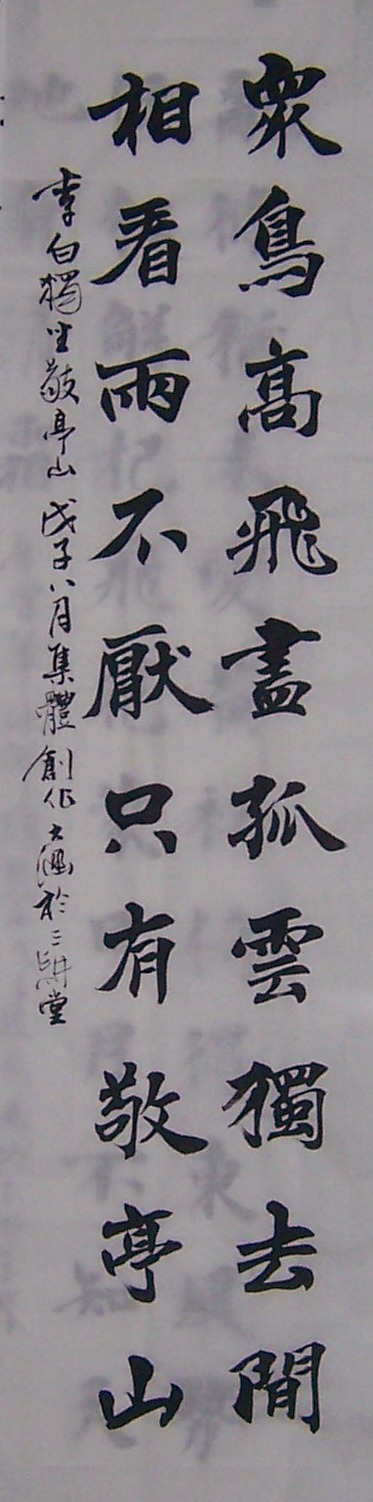 眾鳥高飛盡孤雲獨去閒
相看兩不厭只有敬亭山
李白獨坐敬亭山戊子八月集體創作大涵於三耕堂